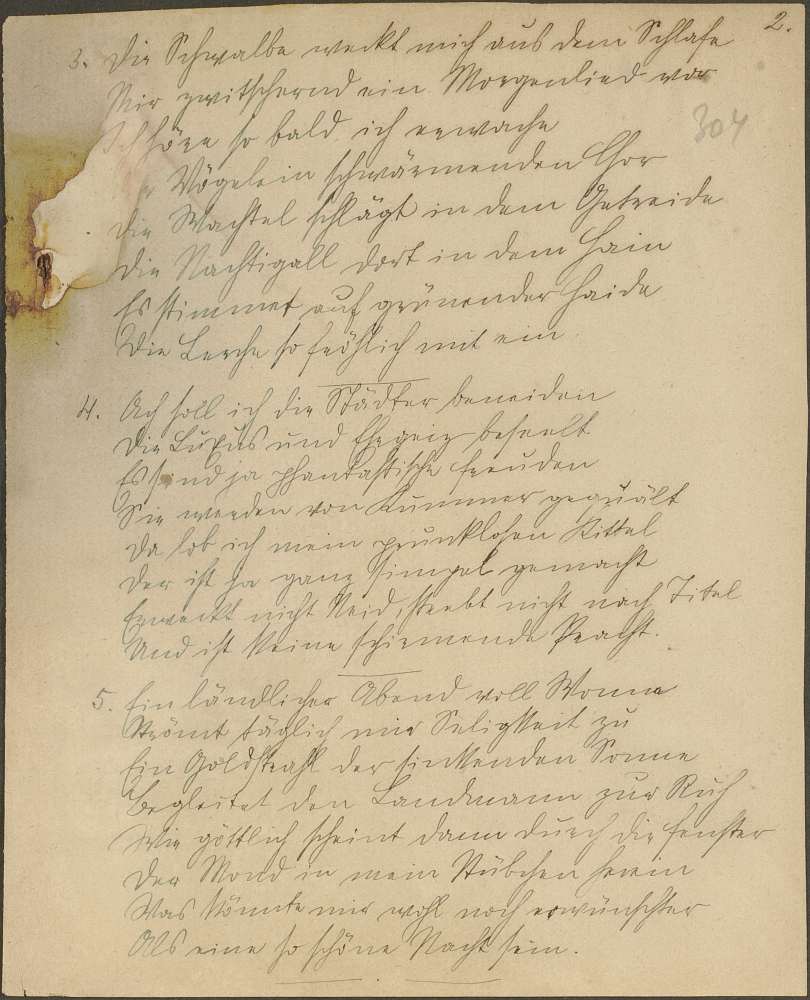 2.
3. Die Schwalbe weckt mich aus dem Schlafe
Mir zwitschernd ein Morgenlied vor
304
Ich höre so bald ich erwache
Vögelein schwärmenden Chor
Die Wachtel schlägt in dem Getreide
Die Nachtigall dort in dem Hain
Es stimmet auf grünender Haide
Die Lerche so fröhlich mit ein
4. Ach soll ich die Städter beneiden
Die Luxus und Ehrgeiz beseelt
Es sind ja phantastische Freuden
Sie werden von Kummer gequält
Da lob ich mein prunklosen Kittel
Der ist ja ganz simpel gemacht
Erweckt nicht Neid, strebt nicht nach Titel
Und ist keine schirmende Pracht.
5. Ein ländlicher Abend voll Wonne
Strömt täglich mir Seligkeit zu
Ein Goldstrahl der sinkenden Sonne
Begleitet den Landmann zur Ruh
Wie göttlich scheint dann durch die Fenster
Der Mond in mein Stübchen herein
Was könnte mir wohl noch erwünschter
Als eine so schöne Nacht sein.